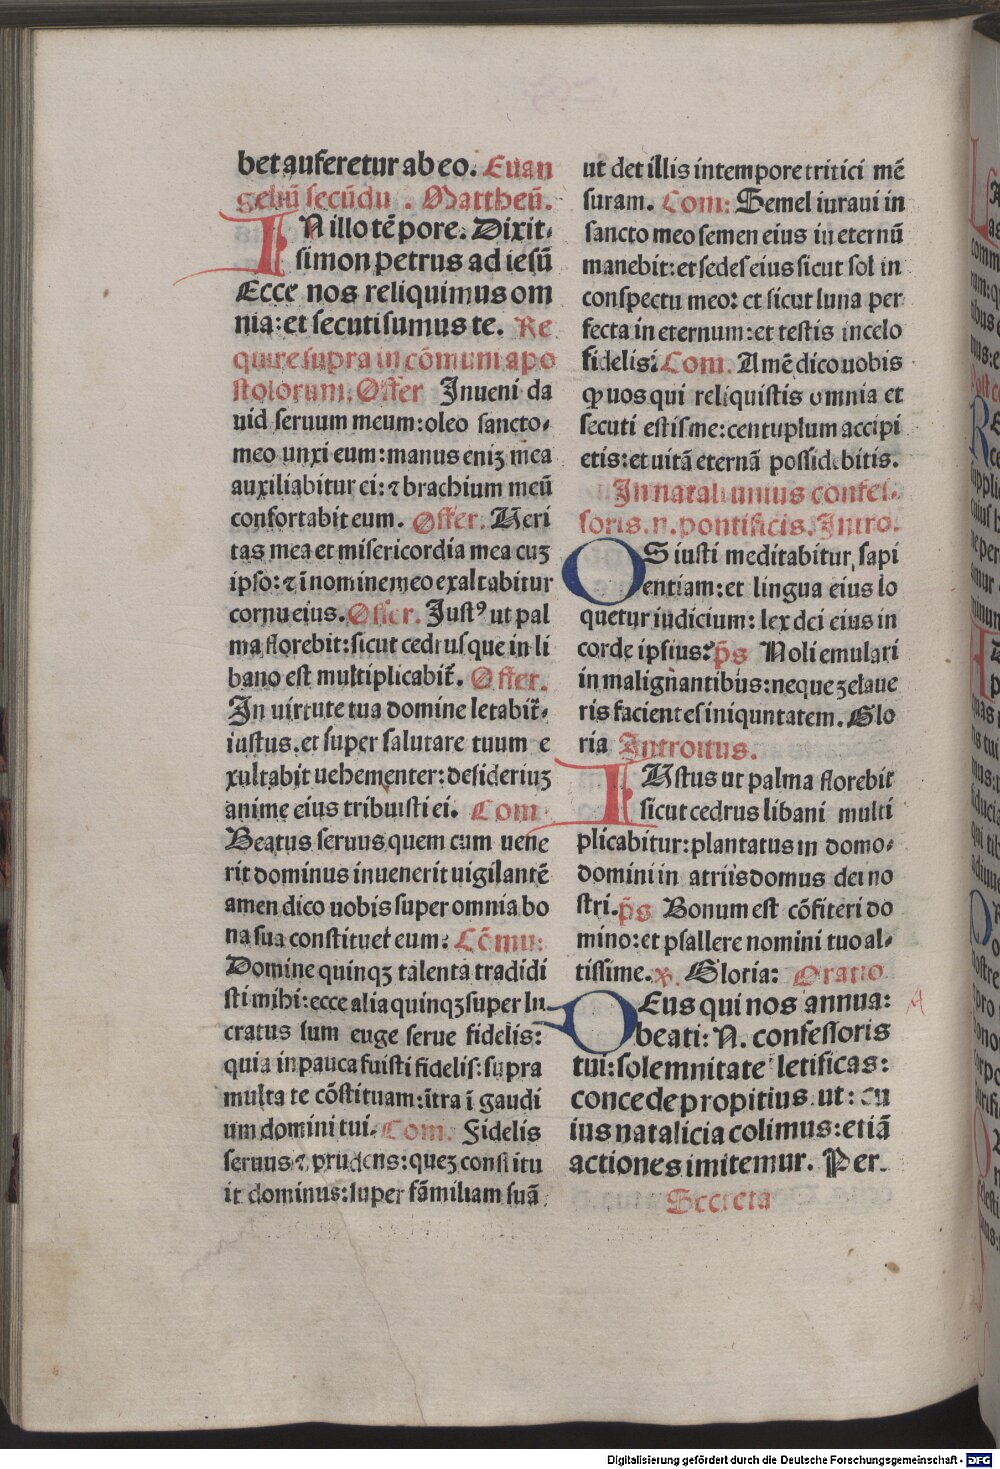 bet auferetur ab eo. Euan
geliū secūdu . Mattheū.
IN illo tē pore. Dixit
simon petrus ad iesū
Ecce nos reliquimus om
nia: et secuti sumus te. Re
quire supra in cōmum apo
stolorum. Offer Inueni da
uid seruum meum: oleo sancto
meo unxi eum: manus eniʒ mea
auxiliabitur ei: ⁊ brachium meū
confortabit eum. Offer. Ueri
tas mea et misericordia mea cuʒ
ipso: ⁊ ī nomine meo exaltabitur
cornu eius. Offer. Justꝰ ut pal
ma florebit: sicut cedrus que in li
bano est multiplicabit̄. Offer.
In uirtute tua domine letabit̄
iustus. et super salutare tuum e
xultabit uehementer: desideriuʒ
anime eius tribuisti ei. Com
Beatus seruus quem cum uene
rit dominus inuenerit uigilantē
amen dico uobis super omnia bo
na sua constituet eum: Cōmu:
Domine quinqʒ talenta tradidi
sti mihi: ecce alia quinqʒ super lu
cratus sum euge serue fidelis:
quia in pauca fuisti fidelis: supra
multa te cōstituam: ītra ī gaudi
um domini tui. Com. Fidelis
seruus ⁊ prudens: queʒ constitu
it dominus: super fāmiliam suā
ut det illis in tempore tritici mē
suram. Com: Semel iuraui in
sancto meo semen eius in eternū
manebit: et sedes eius sicut sol in
conspectu meo: et sicut luna per
fecta in eternum: et testis in celo
fidelis: Com. Amē dico uobis
ꝙ uos qui reliquistis omnia et
secuti estis me: centuplum accipi
etis: et uitā eternā possidebitis.
In natali unius confes
soris. n. pontificis. Intro.
OS iusti meditabitur sapi
entiam: et lingua eius lo
quetur iudicium: lex dei eius in
corde ipsius: p̄s Noli emulari
in malign̄antibus: neque ʒelaue
ris facientes iniquntatem. Glo
ria Introitus.
IUstus ut palma florebit
sicut cedrus libani multi
plicabitur: plantatus in domo
domini in atriis domus dei no
stri. p̄s Bonum est cōfiteri do
mino: et psallere nomini tuo al
tissime. ꝟ. Gloria: Oratio
DEus qui nos annua:
beati: N. confessoris
tui: solemnitate letificas:
concede propitius ut: cu
ius natalicia colimus: etiā
actiones imitemur. Per.
Secreta
Digitalisierung gefördert durch die Deutsche Forschungsgemeinschaft - DFG